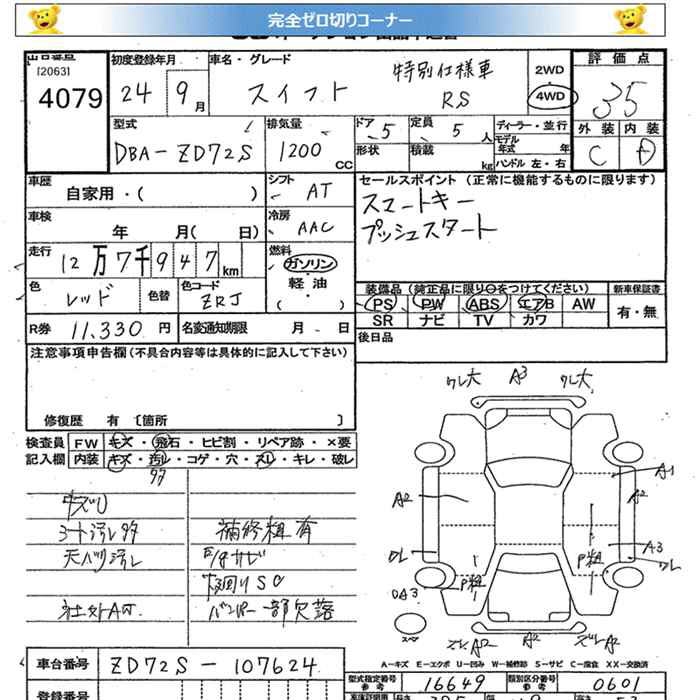 完全ゼロ切りコーナー
出品番号
[2063]
4079
初度登録年月
24 9月
車名・グレード
スイフト
特別仕様車
RS
2WD
4WD
評価点
3.5
外装 内装
C D
型式
DBA-ZD72S
排気量
1200 CC
ドア 5
定員 5人
形状
積載 kg
ディーラー・並行
モデル年式 年
ハンドル 左・右
車歴
自家用・( )
シフト
AT
車検
年 月( 日)
冷房
AAC
走行
12万7千947km
燃料
ガソリン
軽油
( )
色
レッド
色替
色コード
ZRJ
R券 11,330円
名変通知期限 月 日
セールスポイント(正常に機能するものに限ります)
スマートキー
プッシュスタート
装備品(純正品に限り○をつけてください)
新車保証書
PS PW ABS エアB AW
有・無
SR ナビ TV カワ
後日品
注意事項申告欄(不具合内容等は具体的に記入して下さい)
修復歴 有〔箇所 〕
検査員 FW キズ・飛石・ヒビ割・リペア跡・×要
記入欄 内装 キズ・汚レ・コゲ・穴・スレ・キレ・破レ
シート汚レ多
補修粗有
天バリ汚レ
下廻りSC
社外AT
バンパー一部欠落
ワレ大 A3 ワレ大
A1
A2
A2
A3
ワレ
ワレ
P粗
P粗
A3
スペア
A2
A2
A2
A=キズ E=エクボ U=凹み W=補修跡 S=サビ C=腐食 XX=交換済
車台番号
ZD72S-107624
型式指定番号
参考
16649
類別区分番号
参考
0601
登録番号